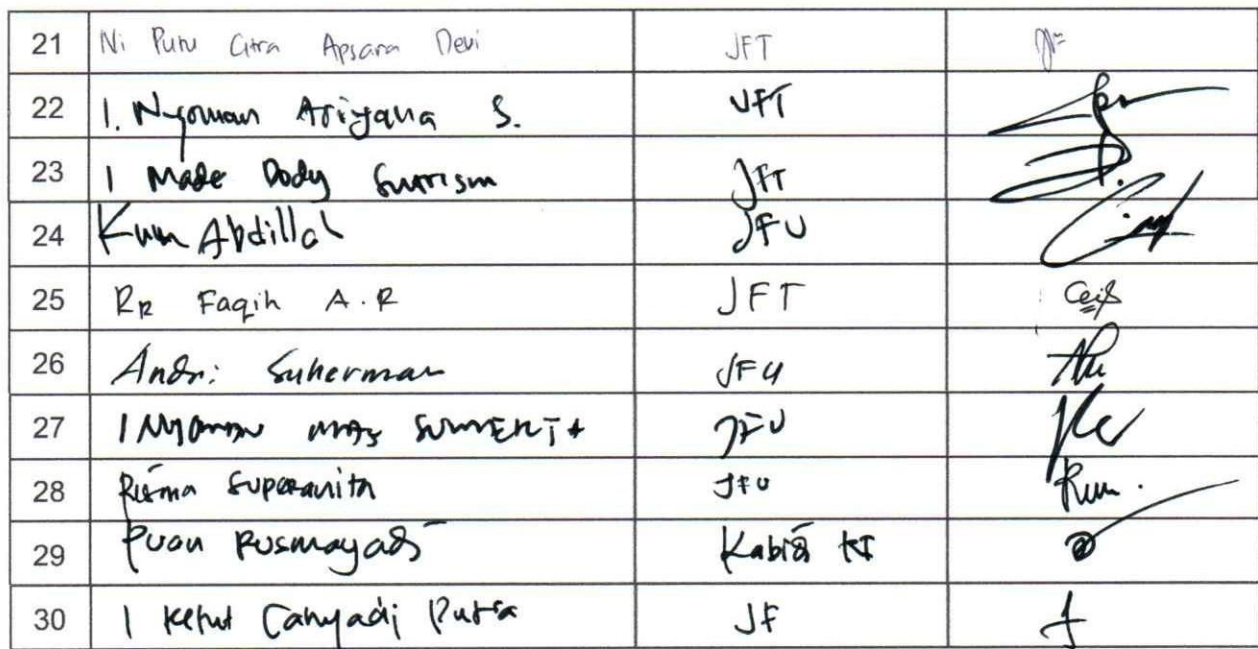 21 Ni Putu Citra Apsara Devi JFT
22 I. Nyoman Ariyana S. JFT
23 I Made Dody JFT
24 Abdillah JFU
25 RR Faqih A.R JFT
26 Andri Suherman JFU
27 I Nyoman Mas Sumerta JFU
28 Risma JFU
29 Rusmayadi Kabid KI
30 I Ketut Cahyadi Putra JF